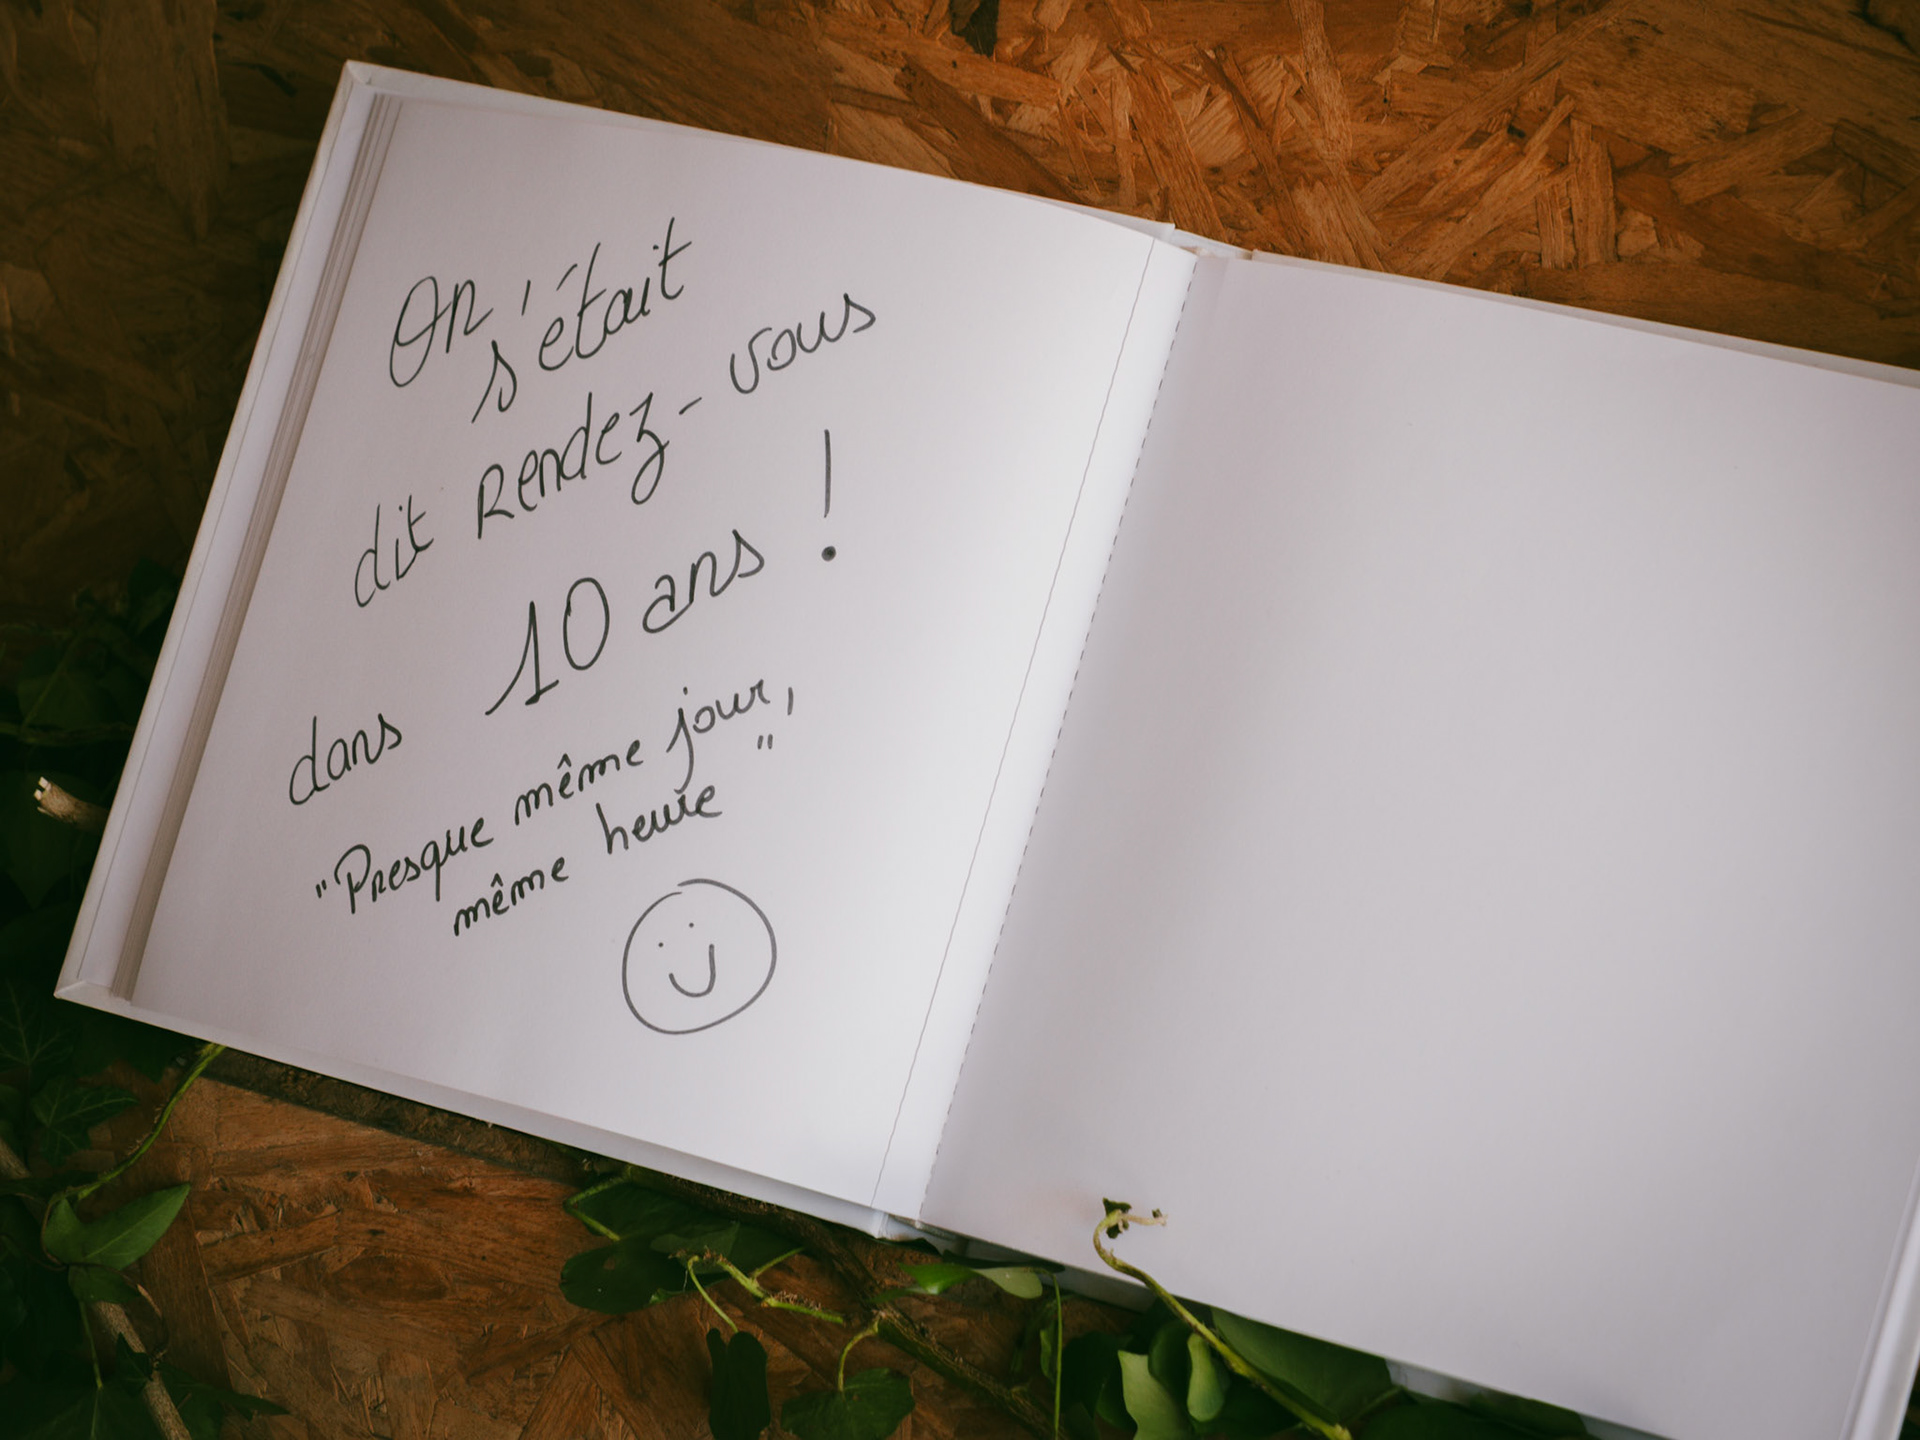 On s'était
dit Rendez-vous
dans 10 ans !
"Presque même jour,
même heure"